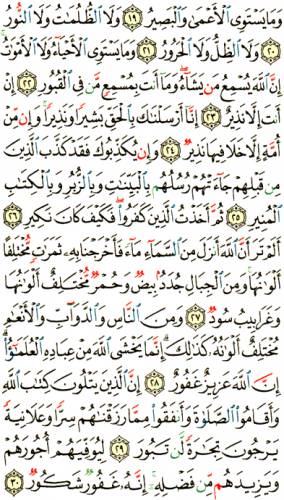 وَمَا يَسْتَوِى ٱلْأَعْمَىٰ وَٱلْبَصِيرُ ١٩ وَلَا ٱلظُّلُمَـٰتُ وَلَا ٱلنُّورُ
٢٠ وَلَا ٱلظِّلُّ وَلَا ٱلْحَرُورُ ٢١ وَمَا يَسْتَوِى ٱلْأَحْيَآءُ وَلَا ٱلْأَمْوَٰتُ
إِنَّ ٱللَّهَ يُسْمِعُ مَن يَشَآءُ وَمَآ أَنتَ بِمُسْمِعٍ مَّن فِى ٱلْقُبُورِ ٢٢ إِنْ
أَنتَ إِلَّا نَذِيرٌ ٢٣ إِنَّآ أَرْسَلْنَـٰكَ بِٱلْحَقِّ بَشِيرًا وَنَذِيرًا وَإِن مِّنْ
أُمَّةٍ إِلَّا خَلَا فِيهَا نَذِيرٌ ٢٤ وَإِن يُكَذِّبُوكَ فَقَدْ كَذَّبَ ٱلَّذِينَ
مِن قَبْلِهِمْ جَآءَتْهُمْ رُسُلُهُم بِٱلْبَيِّنَـٰتِ وَبِٱلزُّبُرِ وَبِٱلْكِتَـٰبِ
ٱلْمُنِيرِ ٢٥ ثُمَّ أَخَذْتُ ٱلَّذِينَ كَفَرُوا۟ فَكَيْفَ كَانَ نَكِيرِ ٢٦
أَلَمْ تَرَ أَنَّ ٱللَّهَ أَنزَلَ مِنَ ٱلسَّمَآءِ مَآءً فَأَخْرَجْنَا بِهِۦ ثَمَرَٰتٍ مُّخْتَلِفًا
أَلْوَٰنُهَا وَمِنَ ٱلْجِبَالِ جُدَدٌۢ بِيضٌ وَحُمْرٌ مُّخْتَلِفٌ أَلْوَٰنُهَا
وَغَرَابِيبُ سُودٌ ٢٧ وَمِنَ ٱلنَّاسِ وَٱلدَّوَآبِّ وَٱلْأَنْعَـٰمِ
مُخْتَلِفٌ أَلْوَٰنُهُۥ كَذَٰلِكَ إِنَّمَا يَخْشَى ٱللَّهَ مِنْ عِبَادِهِ ٱلْعُلَمَـٰٓؤُا۟
إِنَّ ٱللَّهَ عَزِيزٌ غَفُورٌ ٢٨ إِنَّ ٱلَّذِينَ يَتْلُونَ كِتَـٰبَ ٱللَّهِ
وَأَقَامُوا۟ ٱلصَّلَوٰةَ وَأَنفَقُوا۟ مِمَّا رَزَقْنَـٰهُمْ سِرًّا وَعَلَانِيَةً
يَرْجُونَ تِجَـٰرَةً لَّن تَبُورَ ٢٩ لِيُوَفِّيَهُمْ أُجُورَهُمْ
وَيَزِيدَهُم مِّن فَضْلِهِۦٓ إِنَّهُۥ غَفُورٌ شَكُورٌ ٣٠